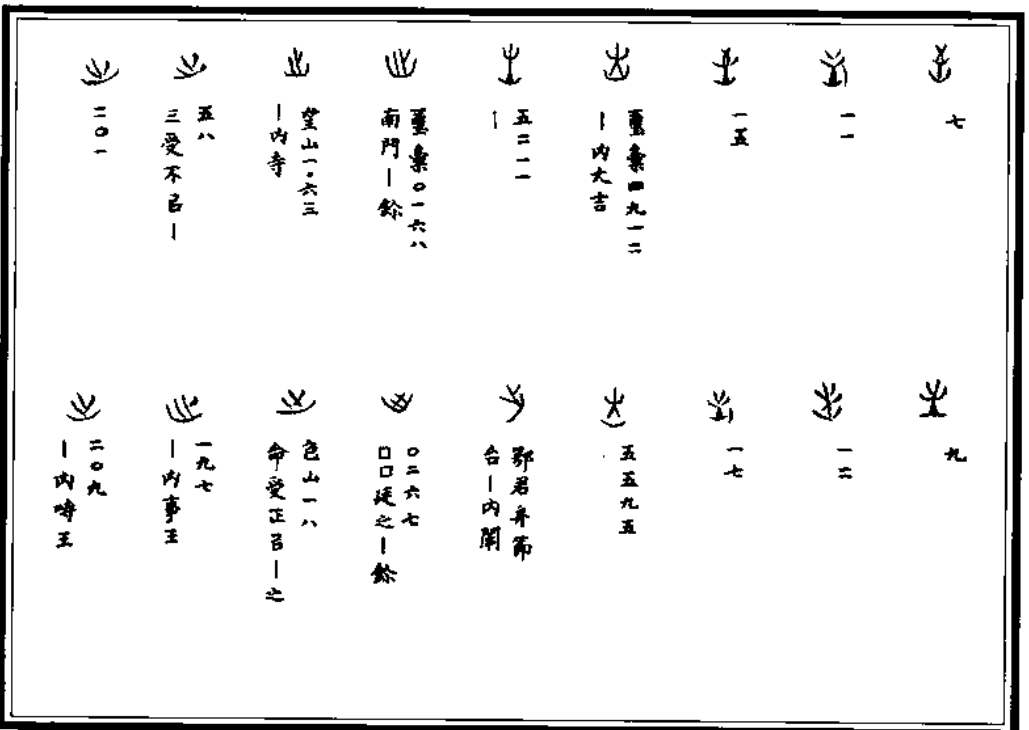 七
一一
一五
璽彙四九一二
｜內大吉
五二一一
｜
璽彙〇一六八
南門｜鉩
望山一・六三
｜內寺
五八
三受不㠯｜
二〇一
九
一二
一七
五五九五
鄂君舟節
台｜內關
〇二六七
口口廷之｜鉩
包山一八
命受正㠯｜之
一九七
｜內事王
二〇九
｜內王